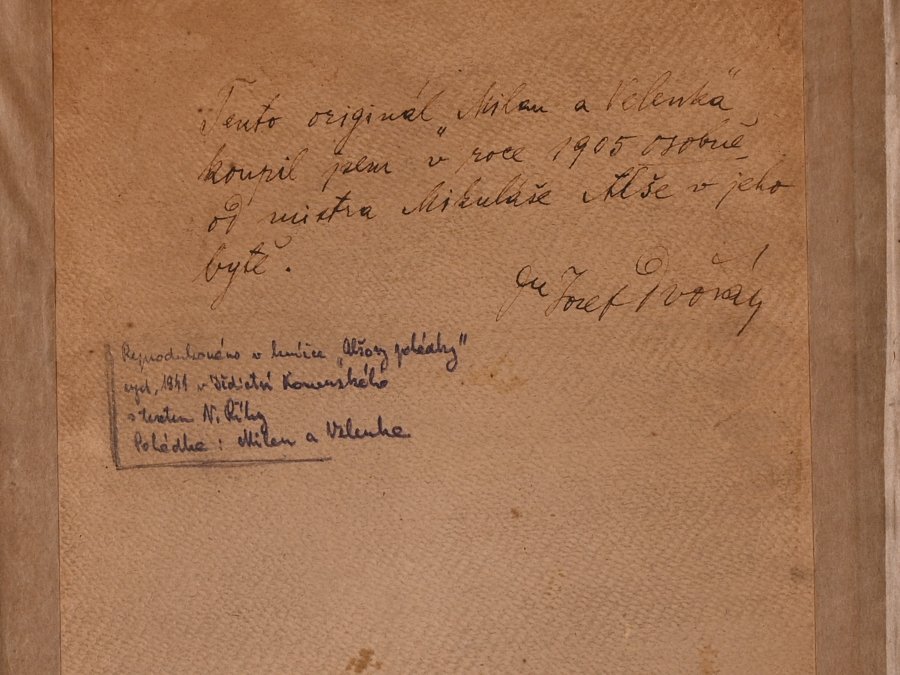 Tento originál „Milan a Velenka"
koupil jsem v roce 1905 osobně
od mistra Mikuláše Alše v jeho
bytě.
Josef Dvořák
Reprodukováno v knížce „Alšovy pohádky"
vyd. 1941 v Dědictví Komenského
s textem V. Říhy
Pohádka: Milan a Velenka